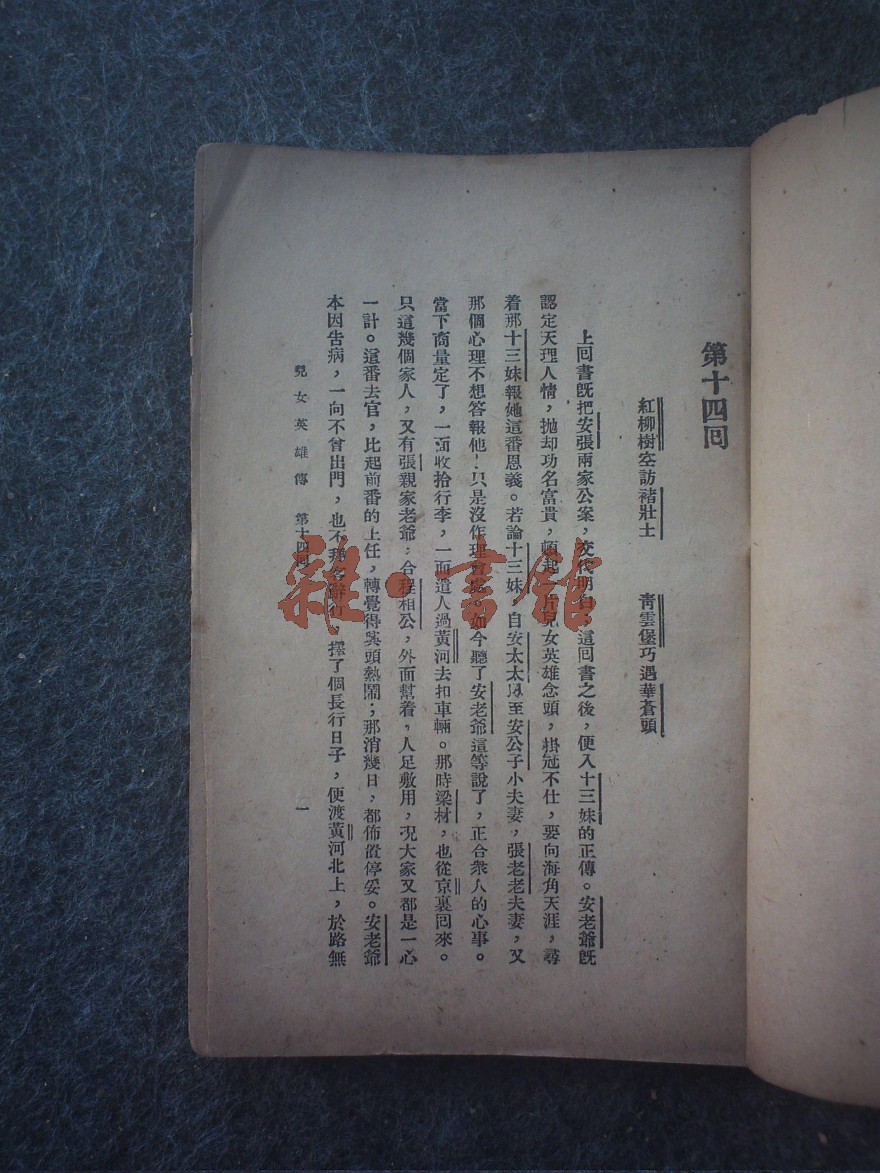 第十四囘
紅柳樹空訪褚壯士　青雲堡巧遇華蒼頭
上囘書旣把安張兩家公案，交代明白，這囘書之後，便入十三妹的正傳。安老爺旣
認定天理人情，拋却功名富貴，頓起一片兒女英雄念頭，掛冠不仕，要向海角天涯，尋
着那十三妹報她這番恩義。若論十三妹，自安太太以至安公子小夫妻，張老老夫妻，又
那個心理不想答報他，只是沒作理會處。如今聽了安老爺這等說了，正合衆人的心事。
當下商量定了，一面收拾行李，一面遣人過黃河去扣車輛。那時梁材，也從京裏囘來。
只這幾個家人，又有張親家老爺，合程相公，外面幫着，人足敷用，况大家又都是一心
一計。這番去官，比起前番的上任，轉覺得興頭熱鬧；那消幾日，都佈置停妥。安老爺
本因告病，一向不曾出門，也不拜客辭行，擇了個長行日子，便渡黃河北上，於路無
兒女英雄傳　第十四囘
一
雜·書館